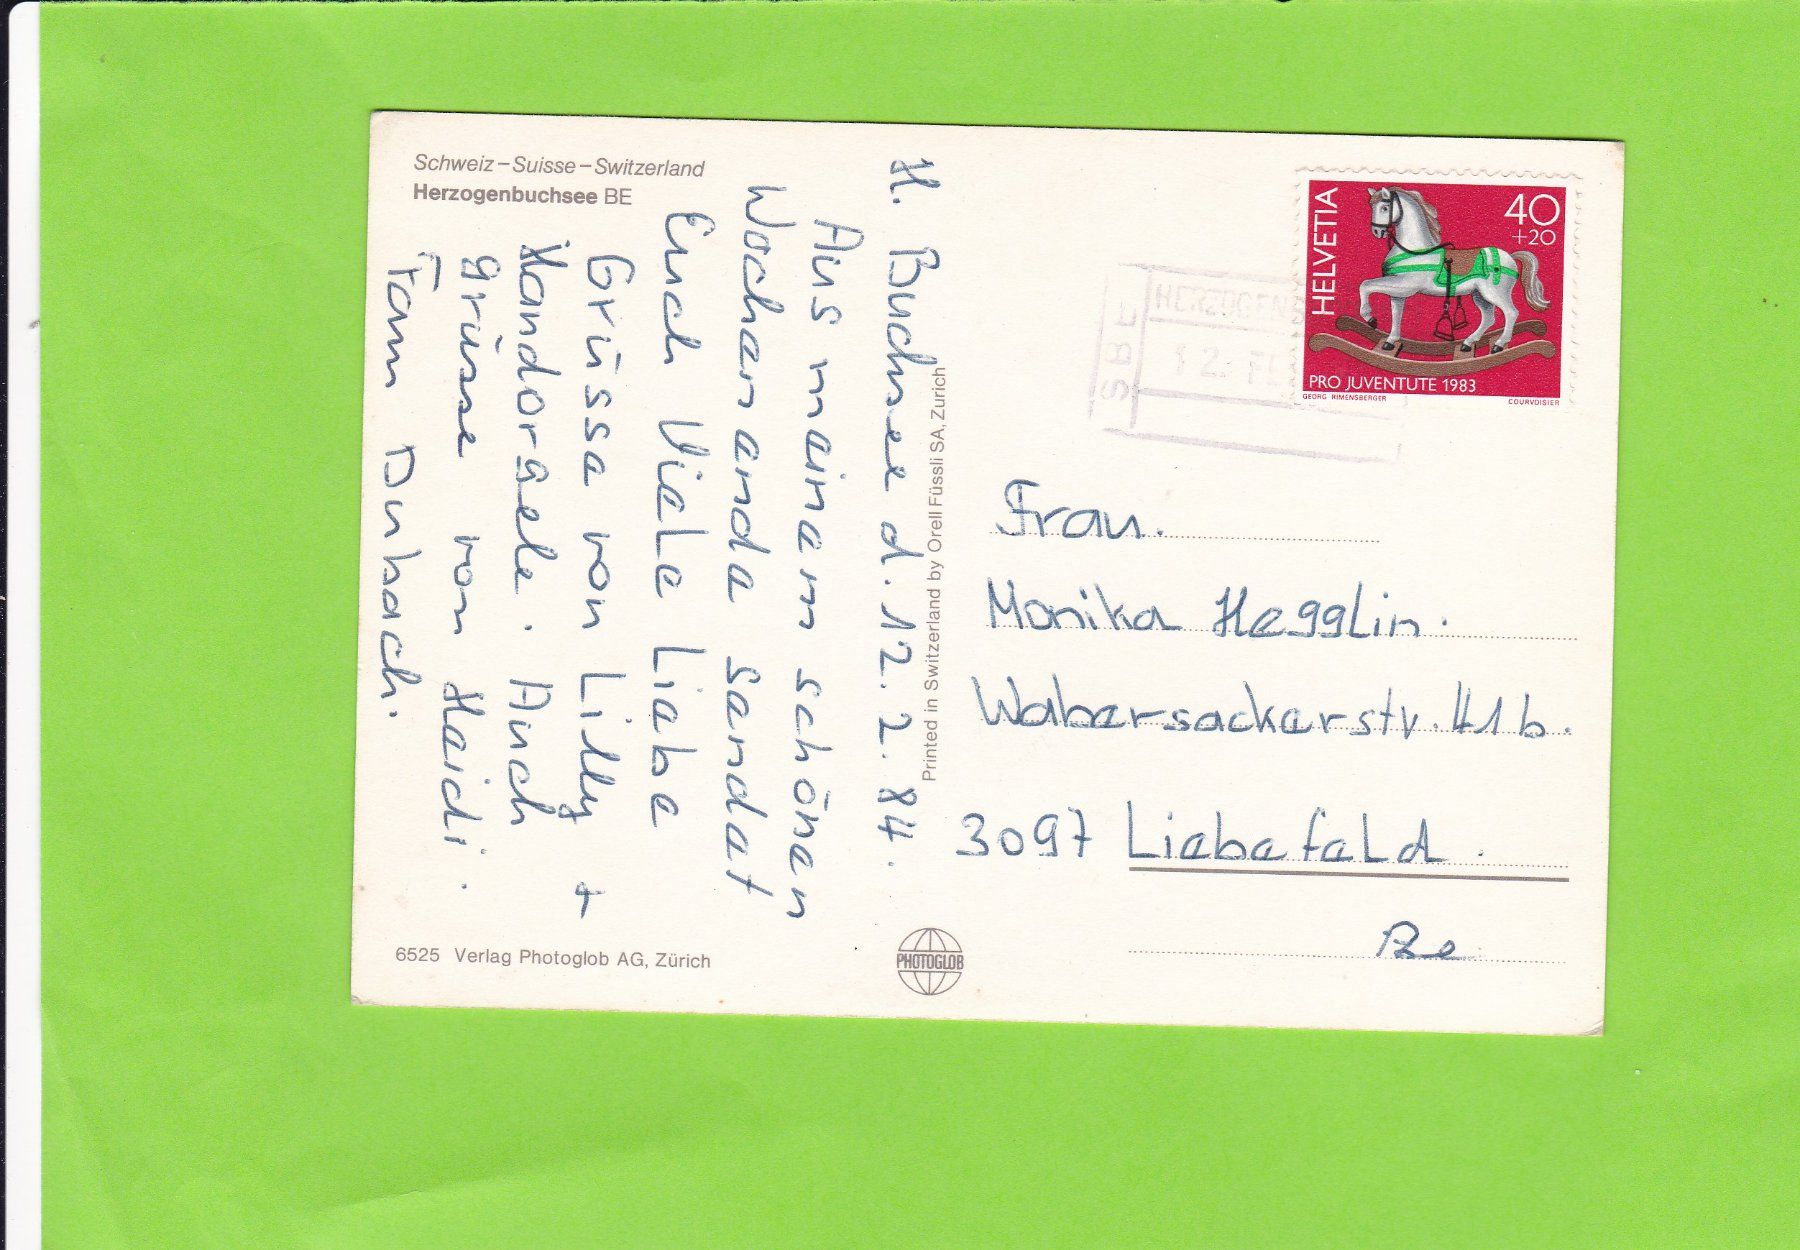 Schweiz – Suisse – Switzerland
Herzogenbuchsee BE
H. Buchsee d. 12.2.84.
Aus meinem schönen
Wochenende sendet
Euch Viele Liebe
Grüsse von Lilly +
Auch
grüsse von Haidi.
Fam Dubach.
6525 Verlag Photoglob AG, Zürich
Printed in Switzerland by Orell Füssli SA, Zurich
PHOTOGLOB
SBF
HERZOGENB
12. FE
HELVETIA
40
+20
PRO JUVENTUTE 1983
GEORG RIMENSBERGER
COURVOISIER
Frau.
Monika Hegglin.
Wabersackerstr. 41b.
3097 Liebefeld.
Be